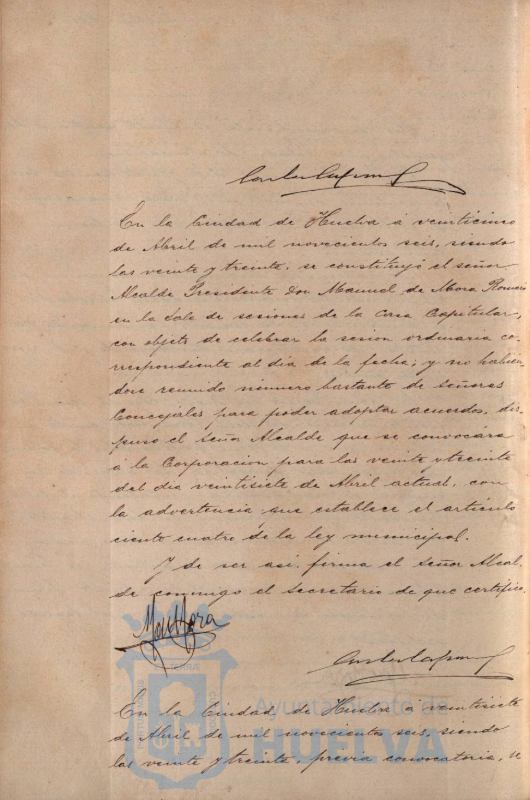 En la Ciudad de Huelva á veinticinco
de Abril de mil novecientos seis, siendo
las veinte y treinta, se constituyó el señor
Alcalde Presidente Don Manuel de Mora Romero
en la Sala de sesiones de la Casa Capitular,
con objeto de celebrar la sesion ordinaria co-
rrespondiente al dia de la fecha; y no habien-
dose reunido número bastante de señores
Concejales para poder adoptar acuerdos, dis-
puso el señor Alcalde que se convocára
á la Corporacion para las veinte y treinta
del dia veintisiete de Abril actual, con
la advertencia que establece el articulo
ciento cuatro de la ley municipal.
Y de ser asi, firma el señor Alcal-
de conmigo el Secretario de que certifico.
Mora
En la Ciudad de Huelva á veintisiete
de Abril de mil novecientos seis, siendo
las veinte y treinta, previa convocatoria, se
Ayuntamiento de
HUELVA